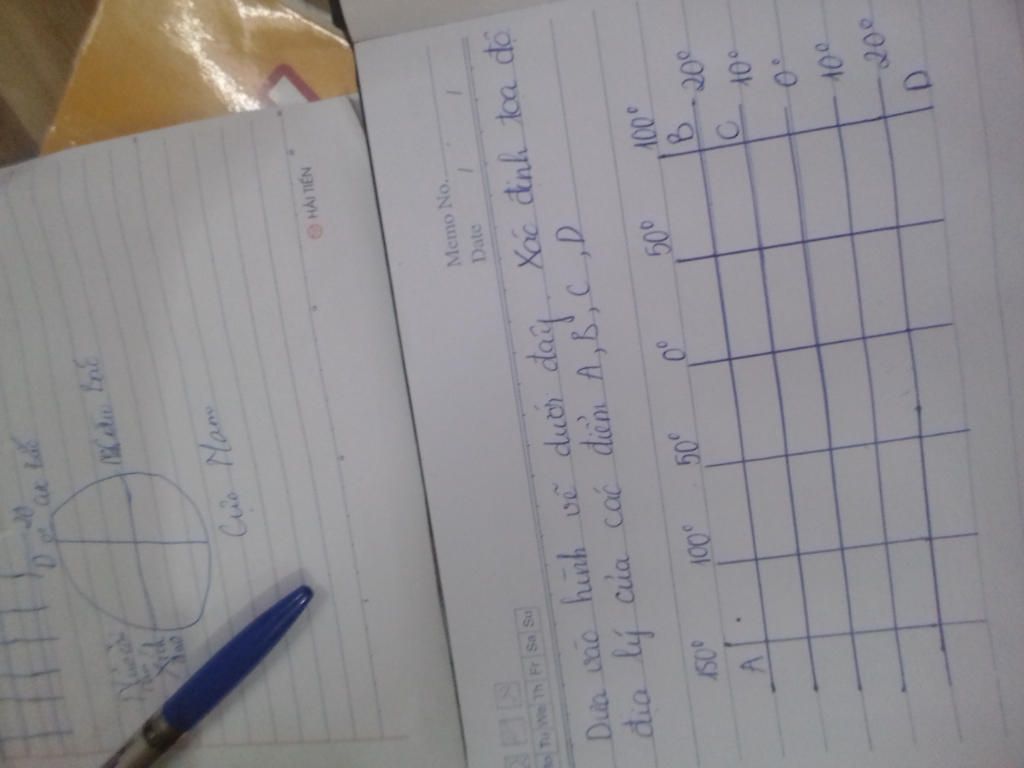 Memo No.
Date / /
Mo Tu We Th Fr Sa Su
Dựa vào hình vẽ dưới đây. Xác định toạ độ
địa lý của các điểm A, B, C, D
150° 100° 50° 0° 50° 100°
A B 20°
C 10°
0°
10°
20°
D
HẢI TIẾN
Cực Nam